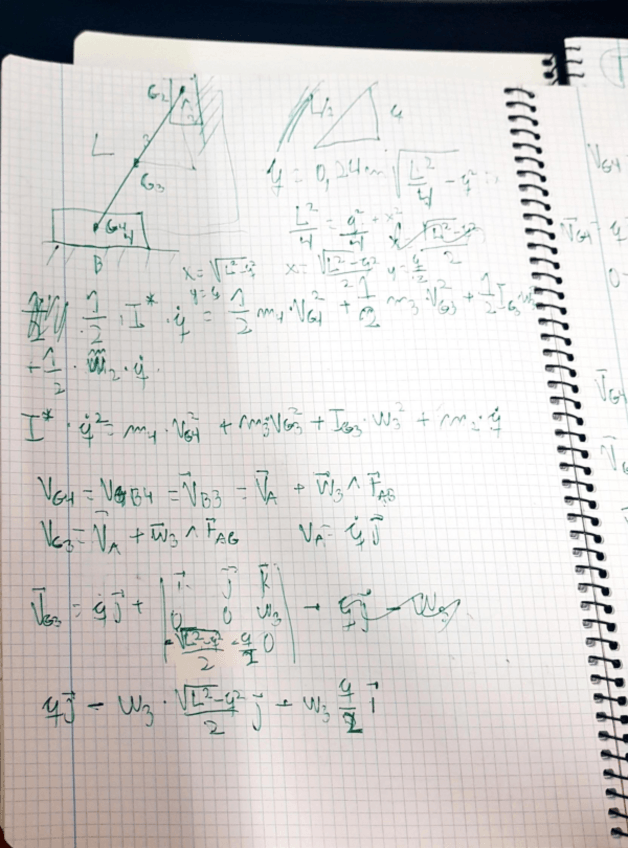 G₂
L
3
G₃
G₄ 4
B
L/2
y
y = 0,24m √(L²/4 - y²)
L²/4 = y²/4 + x²
√(L²-y²)/2
x = √(L²-y²)
y = y
x = √(L²-y²)/2 y = y/2
1/2 · I* · q̇ = 1/2 m₄ · V_G4² + 1/2 m₃ · V_G3² + 1/2 I_G3 w₃²
+ 1/2 · m₂ · q̇
I* · q̇² = m₄ · V_G4² + m₃ V_G3² + I_G3 · W₃² + m₂ · q̇
V_G4 = V_B4 = V⃗_B3 = V⃗_A + W⃗₃ ∧ F⃗_AB
V_G3 = V⃗_A + w⃗₃ ∧ F⃗_AG V_A = q̇ j⃗
V⃗_G3 = q̇ j⃗ + | i⃗ j⃗ k⃗ |
0 0 w₃
-√(L²-q²)/2 -q/2 0
q j⃗ - W₃ · √(L²-q²)/2 j⃗ + W₃ q/2 i⃗
V_G4
V⃗_G4 =
0
V⃗_G4